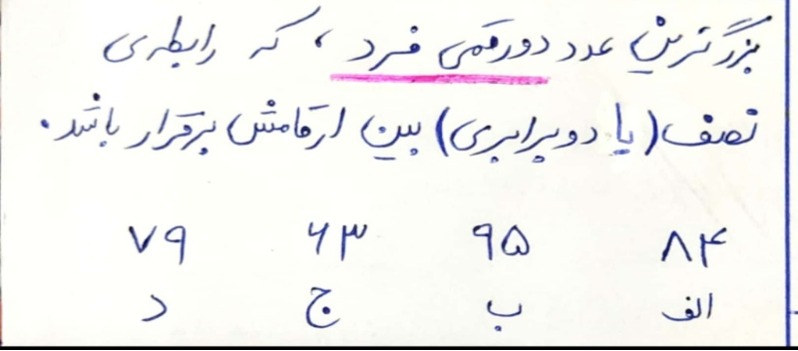 بزرگترین عدد دورقمی فرد، که رابطه‌ی
نصف (یا دوبرابری) بین ارقامش برقرار باشد.
۸۴ ۹۵ ۶۳ ۷۹
الف ب ج د